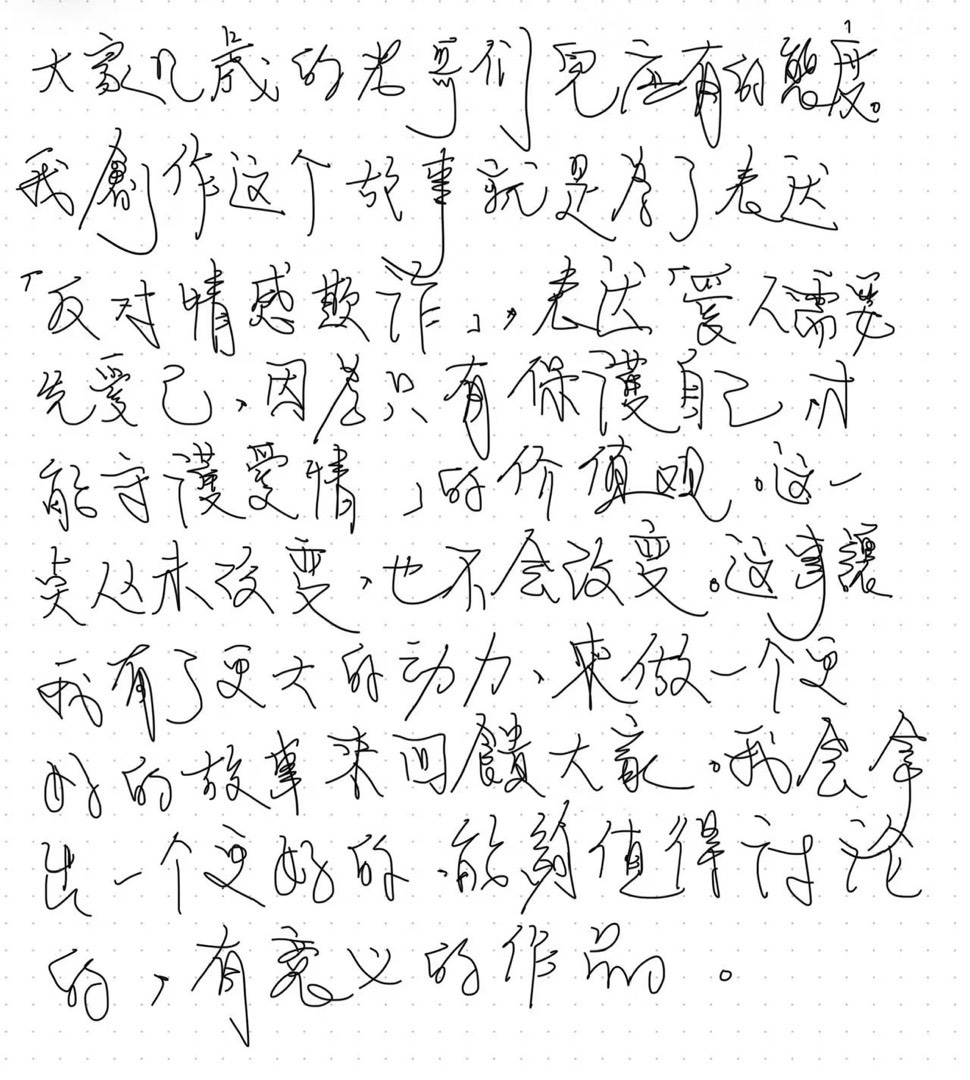 大家几歲的老哥们兒应有的態度。
我創作这个故事就是为了表达
「反对情感欺诈」，表达「愛人需要
先愛己、因为只有保護自己，才
能守護愛情」的价值观。这一
点从未改变，也不会改变。这事讓
我有了更大的动力、来做一个更
好的故事来回饋大家。我会拿
出一个更好的、能夠值得讨论
的，有意义的作品。